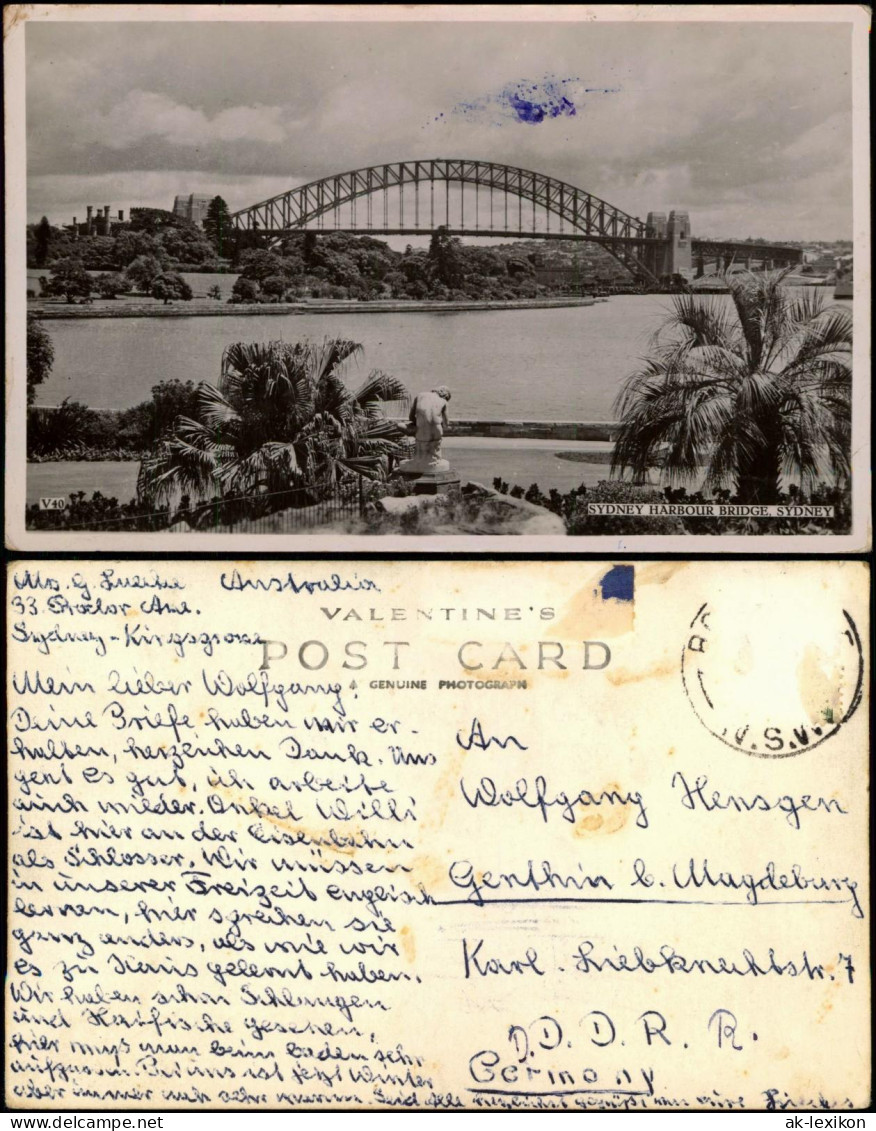 V40
SYDNEY HARBOUR BRIDGE, SYDNEY
Mrs. G. Australia
33.
Sydney - Kingsgrove
VALENTINE'S
POST CARD
A GENUINE PHOTOGRAPH
N.S.W.
Mein lieber Wolfgang!
Deine Briefe haben wir er-
halten, herzlichen Dank. Uns
geht es gut, ich arbeite
auch wieder. Onkel Willi
ist hier an der Eisenbahn
als Schlosser. Wir müssen
in unserer Freizeit englisch
lernen, hier sprechen sie
ganz anders, als wie wir
es zu Haus gelernt haben.
Wir haben schon Schlangen
und Haifische gesehen,
hier muß man beim baden sehr
aufpassen. Bei uns ist jetzt Winter
aber immer noch sehr warm. Seid alle herzlichst gegrüßt von
An
Wolfgang Hensgen
Genthin b. Magdeburg
Karl-Liebknechtstr. 7
D.D.R.
Germany
ak-lexikon